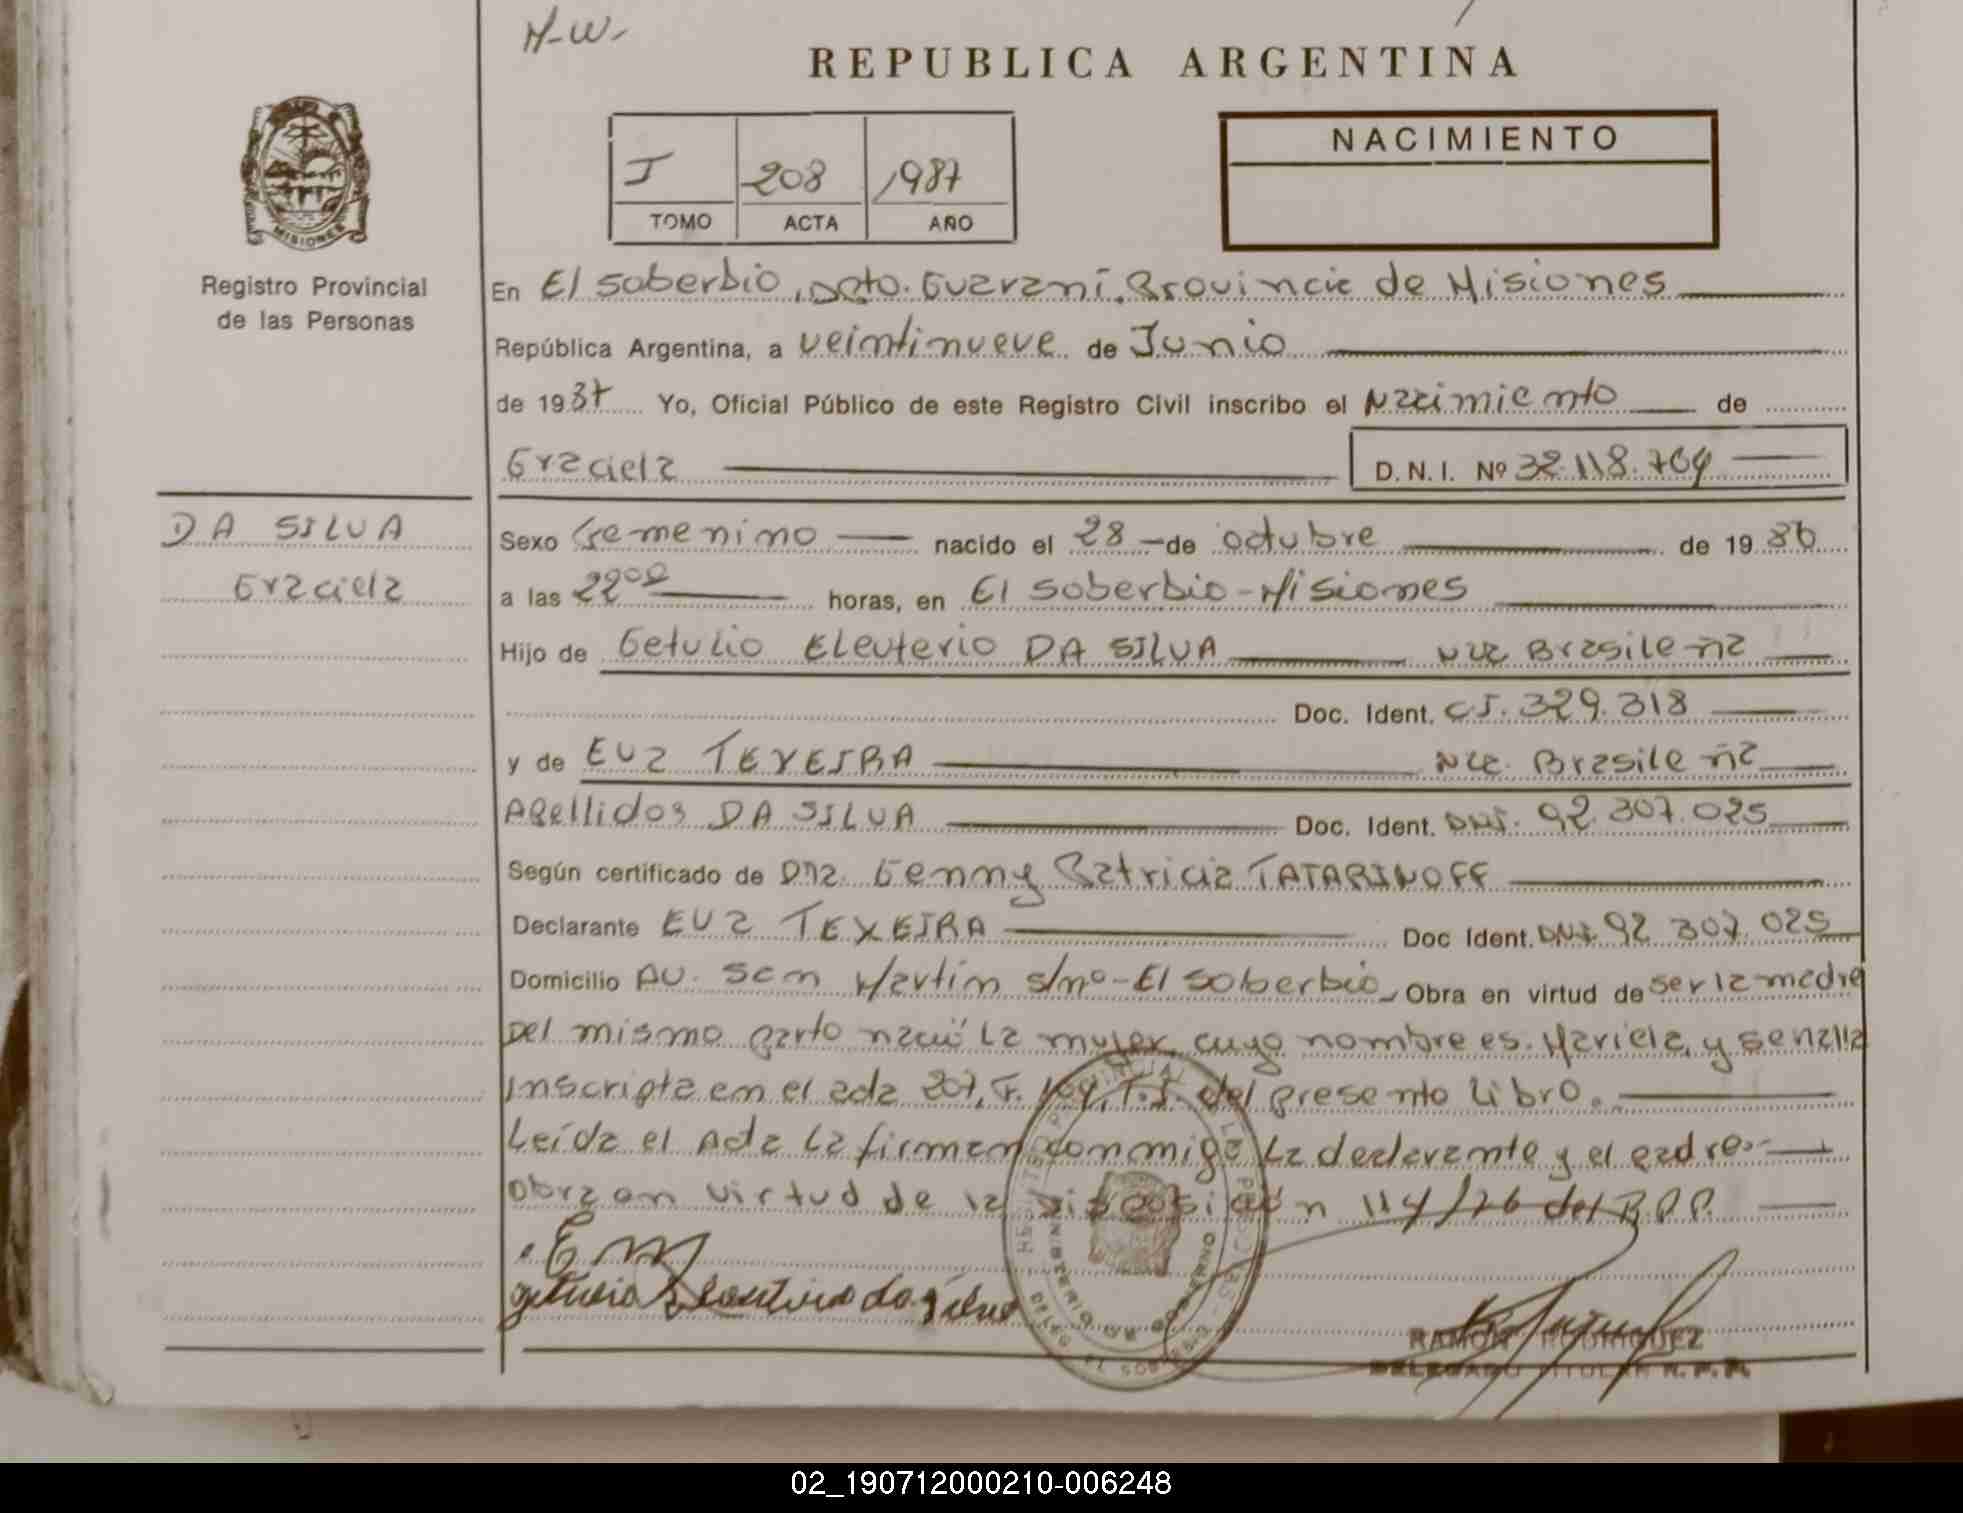 N-W-
REPUBLICA ARGENTINA
I 208 1987
TOMO ACTA AÑO
NACIMIENTO
MISIONES
Registro Provincial
de las Personas
En El Soberbio, Dpto. Guaraní. Provincia de Misiones
República Argentina, a veintinueve de Junio
de 1987 Yo, Oficial Público de este Registro Civil inscribo el Nacimiento de
Graciela D.N.I. Nº 32.118.764
DA SILVA
Graciela
Sexo Femenino nacido el 28 de octubre de 1986
a las 22⁰⁰ horas, en El Soberbio - Misiones
Hijo de Getulio Eleuterio DA SILVA Nac Brasileña
Doc. Ident. CI. 329.318
y de EVA TEXEIRA Nac. Brasileña
Apellidos DA SILVA Doc. Ident. DNI. 92.307.025
Según certificado de Dña. Genny Patricia TATARINOFF
Declarante EVA TEXEIRA Doc Ident. DNI 92 307.025
Domicilio AV. San Martín s/nº - El Soberbio Obra en virtud de ser la madre
Del mismo parto nació la mujer, cuyo nombre es. Mariela, y se halla
Inscripta en el acta 207, F. 104, T.I. del presente Libro.
Leída el Acta La firman conmigo La declarante y el padre.-
obra en virtud de la disposición 114/76 del R.P.P.
Getulio Eleuterio da Silva
MINISTERIO DE GOBIERNO
RAMON RODRIGUEZ
DELEGADO TITULAR R.P.P.
02_190712000210-006248